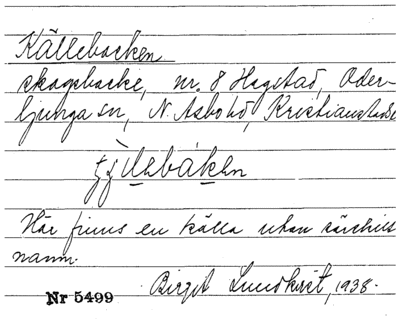 Källebacken
skogsbacke, nr. 8 Hagstad, Oder-
ljunga sn, N. Åsbo hd, Kristianstads
Här finns en källa utan särskilt
namn.
Birgit Lundkvist, 1938.
Nr 5499